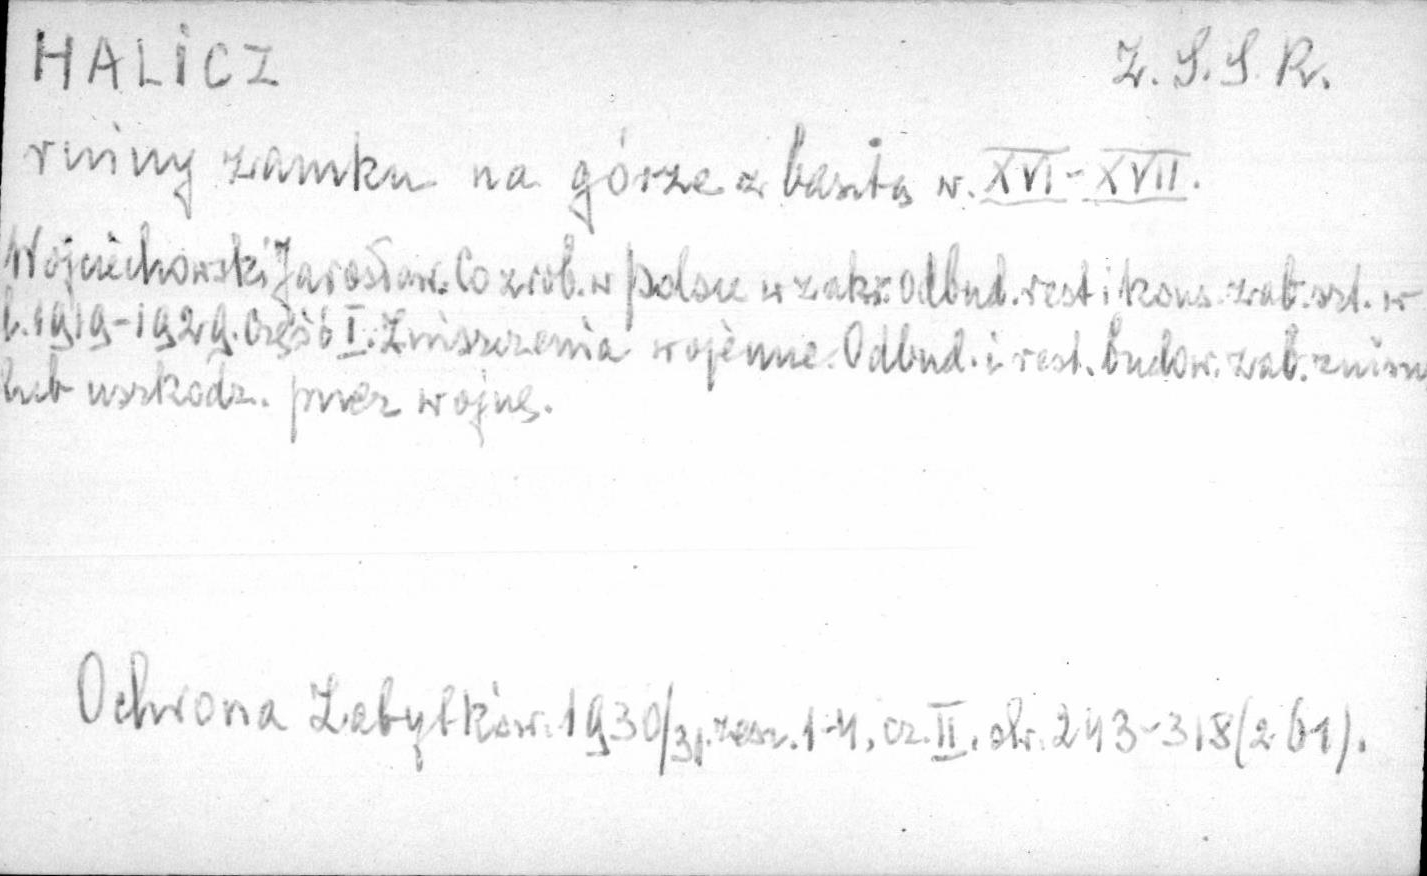 HALICZ Z.S.S.R.
ruiny zamku na górze z basztą w. XVI-XVII.
Wojciechowski Jarosław. Co zrob. w Polsce w zakr. odbud. rest i kons. zab. szt. w
l. 1919-1929. Część I. Zniszczenia wojenne. Odbud. i rest. budow. zab. zniszcz
lub uszkodz. przez wojnę.
Ochrona Zabytków. 1930/31, zesz. 1-4, cz. II, str. 243-318 (261).